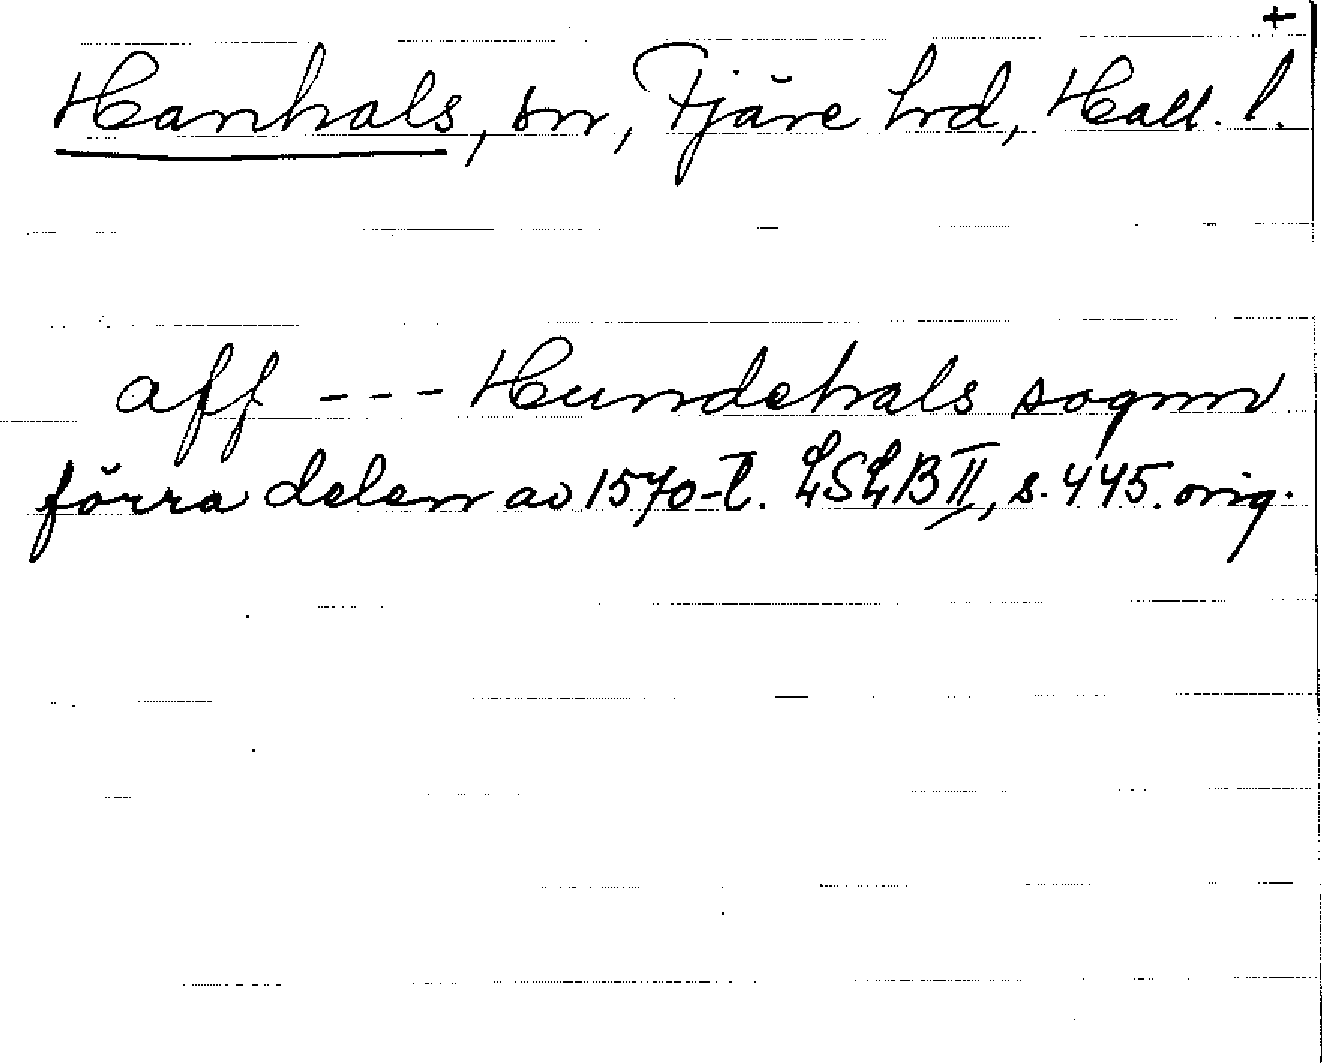 +
Hanhals, sn, Fjäre hrd, Hall. l.
aff --- Hundehals sognn
förra delen av 1570-t. LSLB II, s. 445. orig.